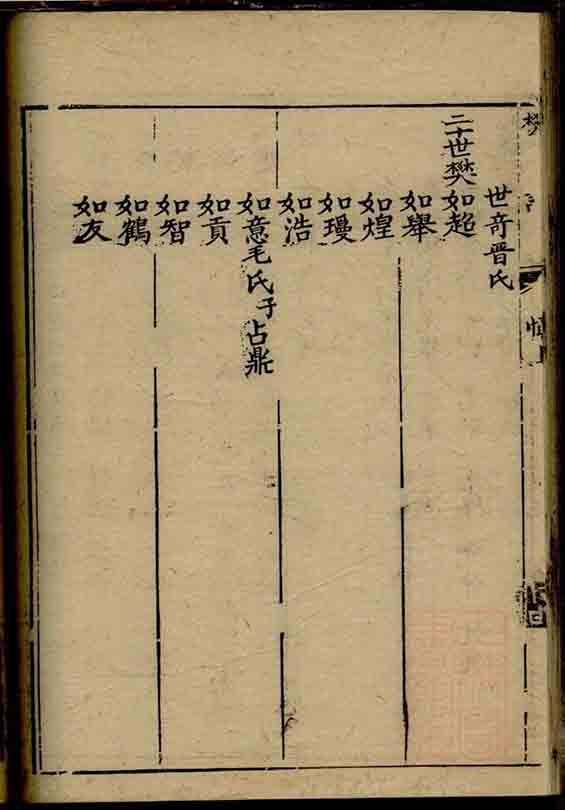 世奇晋氏
二十世樊如超
如舉
如煌
如璦
如浩
如意毛氏子占鼎
如貢
如智
如鶴
如友